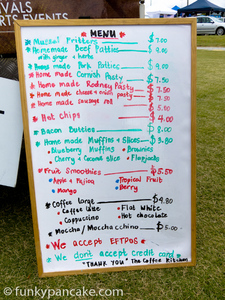 IVALS
ARTS EVENTS
MENU
Mussel Fritters $7.00
Homemade Beef Patties $9.00
with ginger + herbs
Home made Pork Patties $9.00
Home made Cornish Pasty $7.50
Home made Rodney Pasty $7.50
Home made cheese + onion pasty $7.50
Home made sausage roll $5.50
Hot chips $4.00
Bacon Butties $8.00
Home made Muffins + Slices $3.80
Blueberry Muffins • Brownies
• Cherry + Coconut slice • Flapjacks
Fruit Smoothies $5.50
• Apple + Feijoa • Tropical Fruit
• Mango • Berry
Coffee large $4.80
• Coffee latte • Flat White
• Cappuccino • Hot chocolate
Moccha / Moccachino $5.00
We accept EFTPOS
We don't accept credit card
"THANK YOU" The Coffee Kitchen
© funkypancake.com